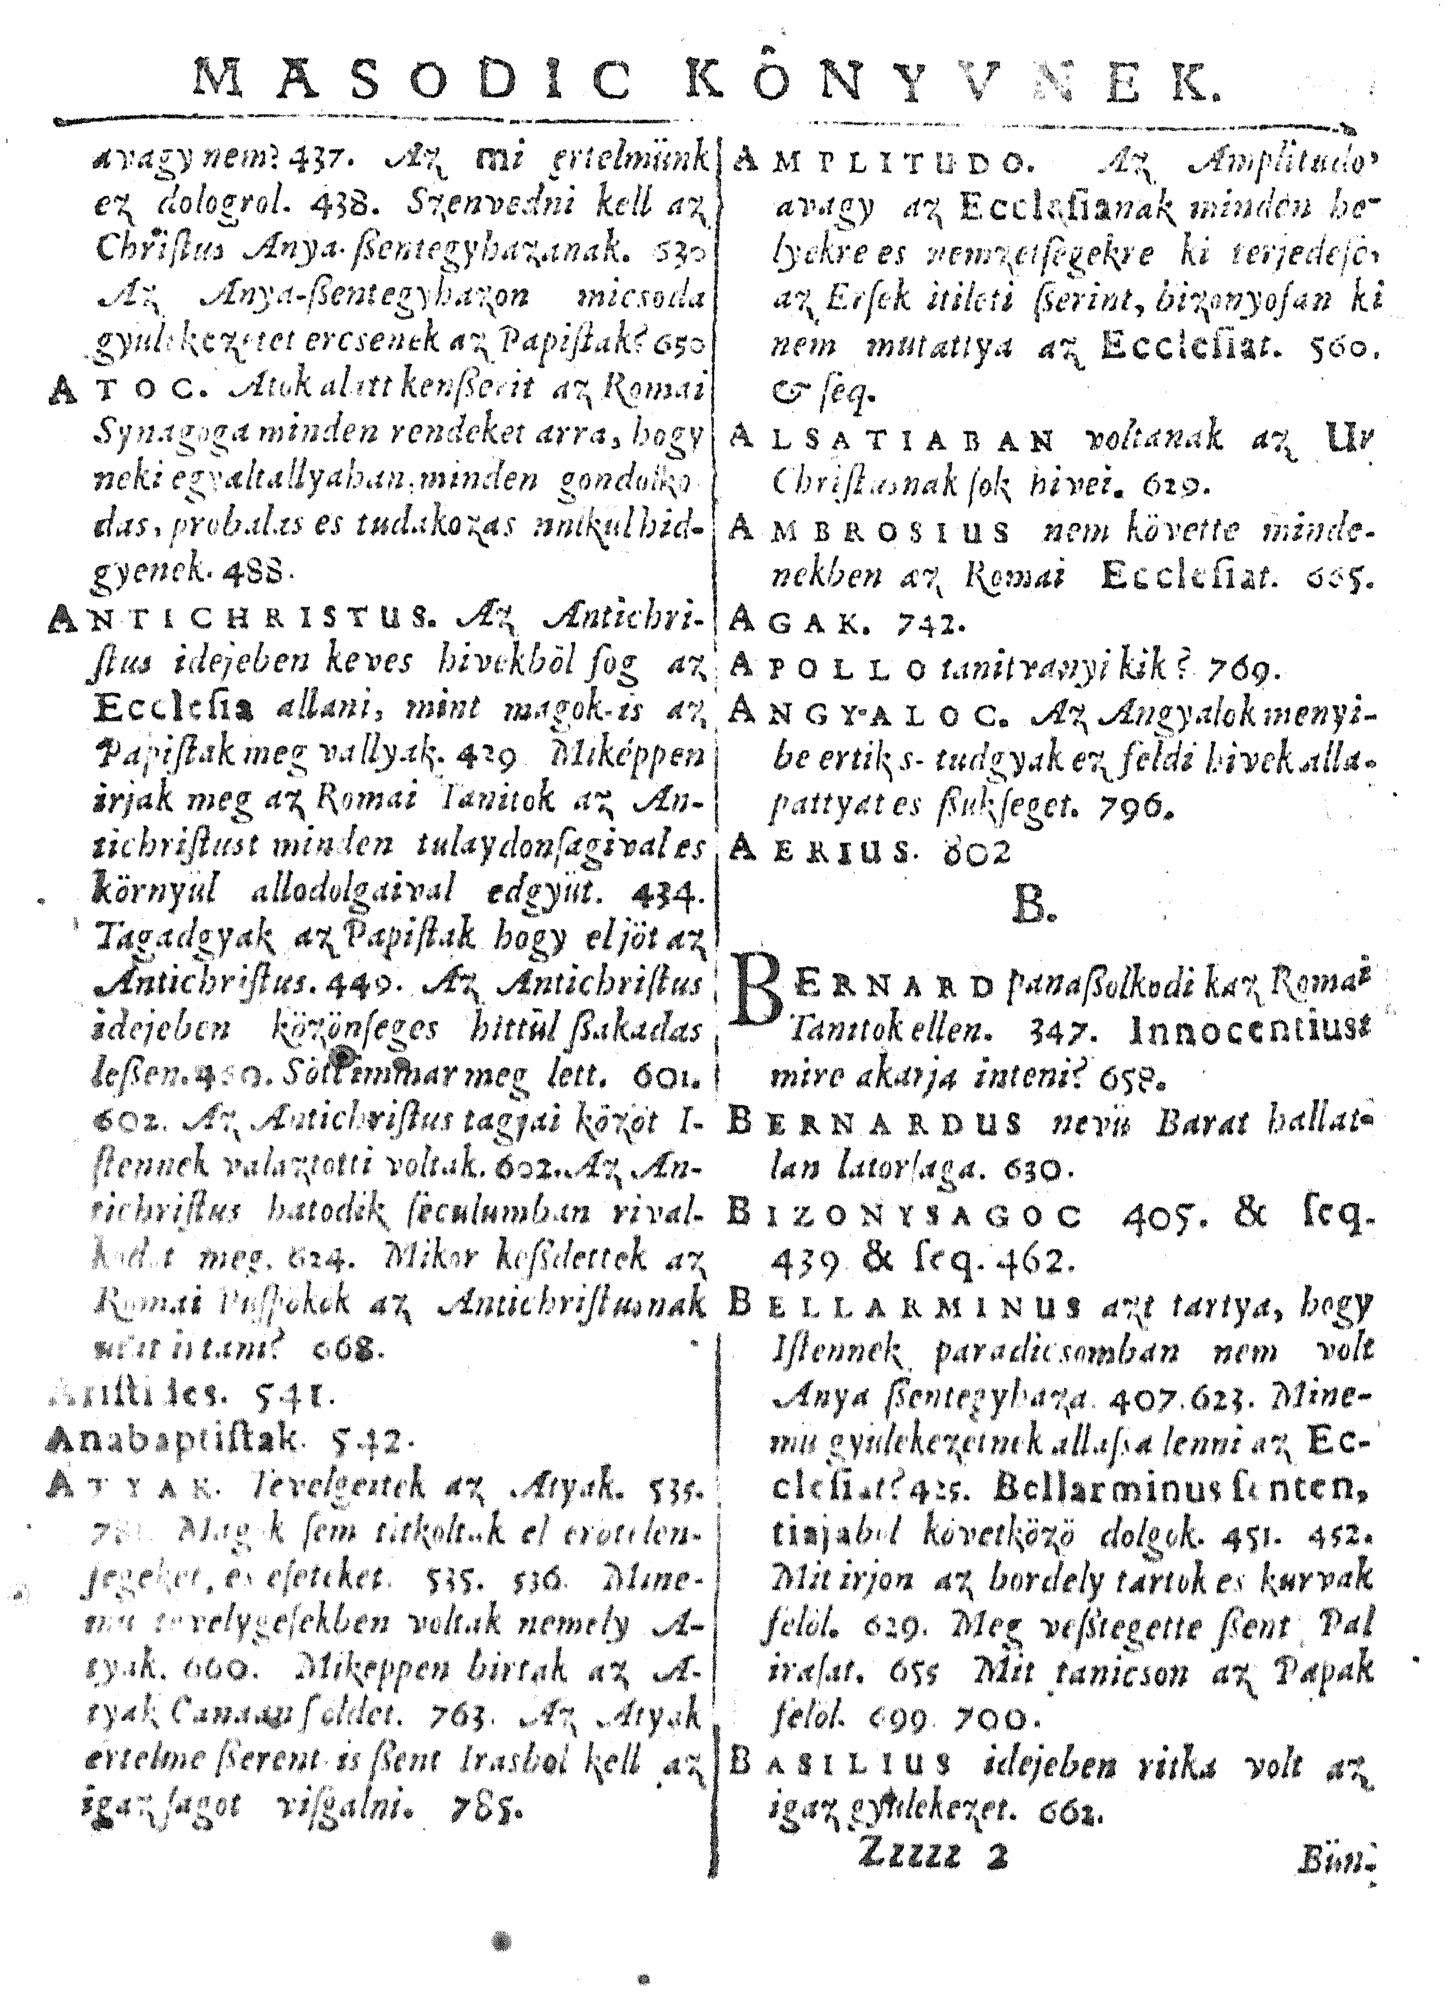 MASODIC KÔNYVNEK.
avagy nem? 437. Az mi ertelmünk
ez dologrol. 438. Szenvedni kell az
Chriſtus Anya-ßentegyhazanak. 630
Az Anya-ßentegyhazon micsoda
gyulekezetet ercsenek az Papiſtak? 650
ATOC. Atok alatt kenßerit az Romai
Synagoga minden rendeket arra, hogy
neki egyaltallyaban, minden gondolko
das, probalas es tudakozas nulkul hid-
gyenek. 488.
ANTICHRISTUS. Az Antichri-
ſtus idejeben keves hivekböl fog az
Eccleſia allani, mint magok-is az
Papiſtak meg vallyak. 429 Miképpen
irjak meg az Romai Tanitok az An-
tichriſtust minden tulaydonſagival es
környül allodolgaival edgyüt. 434.
Tagadgyak az Papiſtak hogy eljöt az
Antichriſtus. 449. Az Antichriſtus
idejeben közönſeges hittül ßakadas
leßen. Söt immar meg lett. 601.
602. Az Antichriſtus tagjai közöt I-
ſtennek valaztotti voltak. 602. Az An-
tichriſtus hatodik ſeculumban rival-
kodot meg. 624. Mikor keßdettek az
Romai Puſpökök az Antichriſtusnak
utat 668.
Ariſtides. 541.
Anabaptiſtak. 542.
ATYAK. Tevelgettek az Atyak. 535.
Magok ſem titkoltak el erotelen-
ſegeket, es eſeteket. 535. 536. Mine-
mü tevelygeſekben voltak nemely A-
tyak. 660. Mikeppen birtak az A-
tyak Canaan földet. 763. Az Atyak
ertelme ßerent-is ßent Irasbol kell az
igazſagot viſgalni. 785.
AMPLITUDO. Az Amplitudo,
avagy az Eccleſianak minden he-
lyekre es nemzetſegekre ki terjedeſe,
az Erſek itileti ſserint, bizonyoſan ki
nem mutattya az Eccleſiat. 560.
& ſeq.
ALSATIABAN voltanak az Ur
Chriſtusnak ſok hivei. 629.
AMBROSIUS nem követte minde-
nekben az Romai Eccleſiat. 665.
AGAK. 742.
APOLLO tanitvanyi kik? 769.
ANGYALOC. Az Angyalok menyi-
be ertik s- tudgyak ez feldi hivek alla-
pattyat es ßukſeget. 796.
AERIUS. 802
B.
BERNARD panaßolkodik az Romai
Tanitok ellen. 347. Innocentiust
mire akarja inteni? 658.
BERNARDUS nevü Barat hallat-
lan latorſaga. 630.
BIZONYSAGOC 405. & ſeq.
439 & ſeq. 462.
BELLARMINUS azt tartya, hogy
Iſtennek paradicsomban nem volt
Anya ßentegyhaza. 407. 623. Mine-
mü gyulekezetnek allaſſa lenni az Ec-
cleſiat? 425. Bellarminus ſenten,
tiajabol következö dolgok. 451. 452.
Mit irjon az bordely tartok es kurvak
felöl. 629. Meg veßtegette ßent Pal
iraſat. 655 Mit tanicson az Papak
felöl. 699. 700.
BASILIUS idejeben ritka volt az
igaz gyulekezet. 662.
Zzzzz 2
Bün-